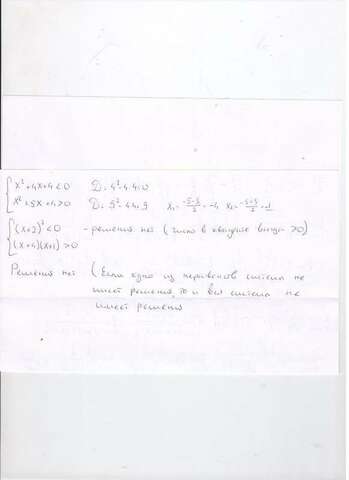 x²+4x+4<0 D=4²-4·4=0
x²+5x+4>0 D=5²-4·4=9 x₁=(-5-3)/2=-4 x₂=(-5+3)/2=-1
(x+2)²<0 - решения нет (число в квадрате всегда >0)
(x+4)(x+1)>0
Решения нет (Если одно из неравенств системы не
имеет решения, то и вся система не
имеет решения